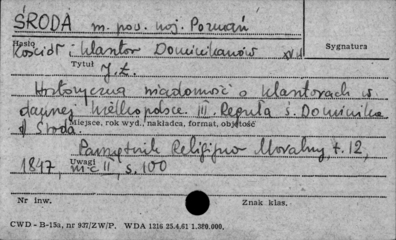 ŚRODA m. pow. woj. Poznań
Hasło
Sygnatura
Kościół i klasztor Dominikanów XVII
Tytuł
J. Ł.
Historyczna wiadomość o klasztorach w
dawnej Wielkopolsce. III. Reguła ś. Dominika
Środa.
Miejsce, rok wyd., nakładca, format, objętość
Pamiętnik Religijno Moralny, t. 12,
Uwagi
1847, s. 100
Nr inw.
Znak klas.
CWD - B-15a, nr 937/ZW/P. WDA 1216 25.4.61 1.380.000.